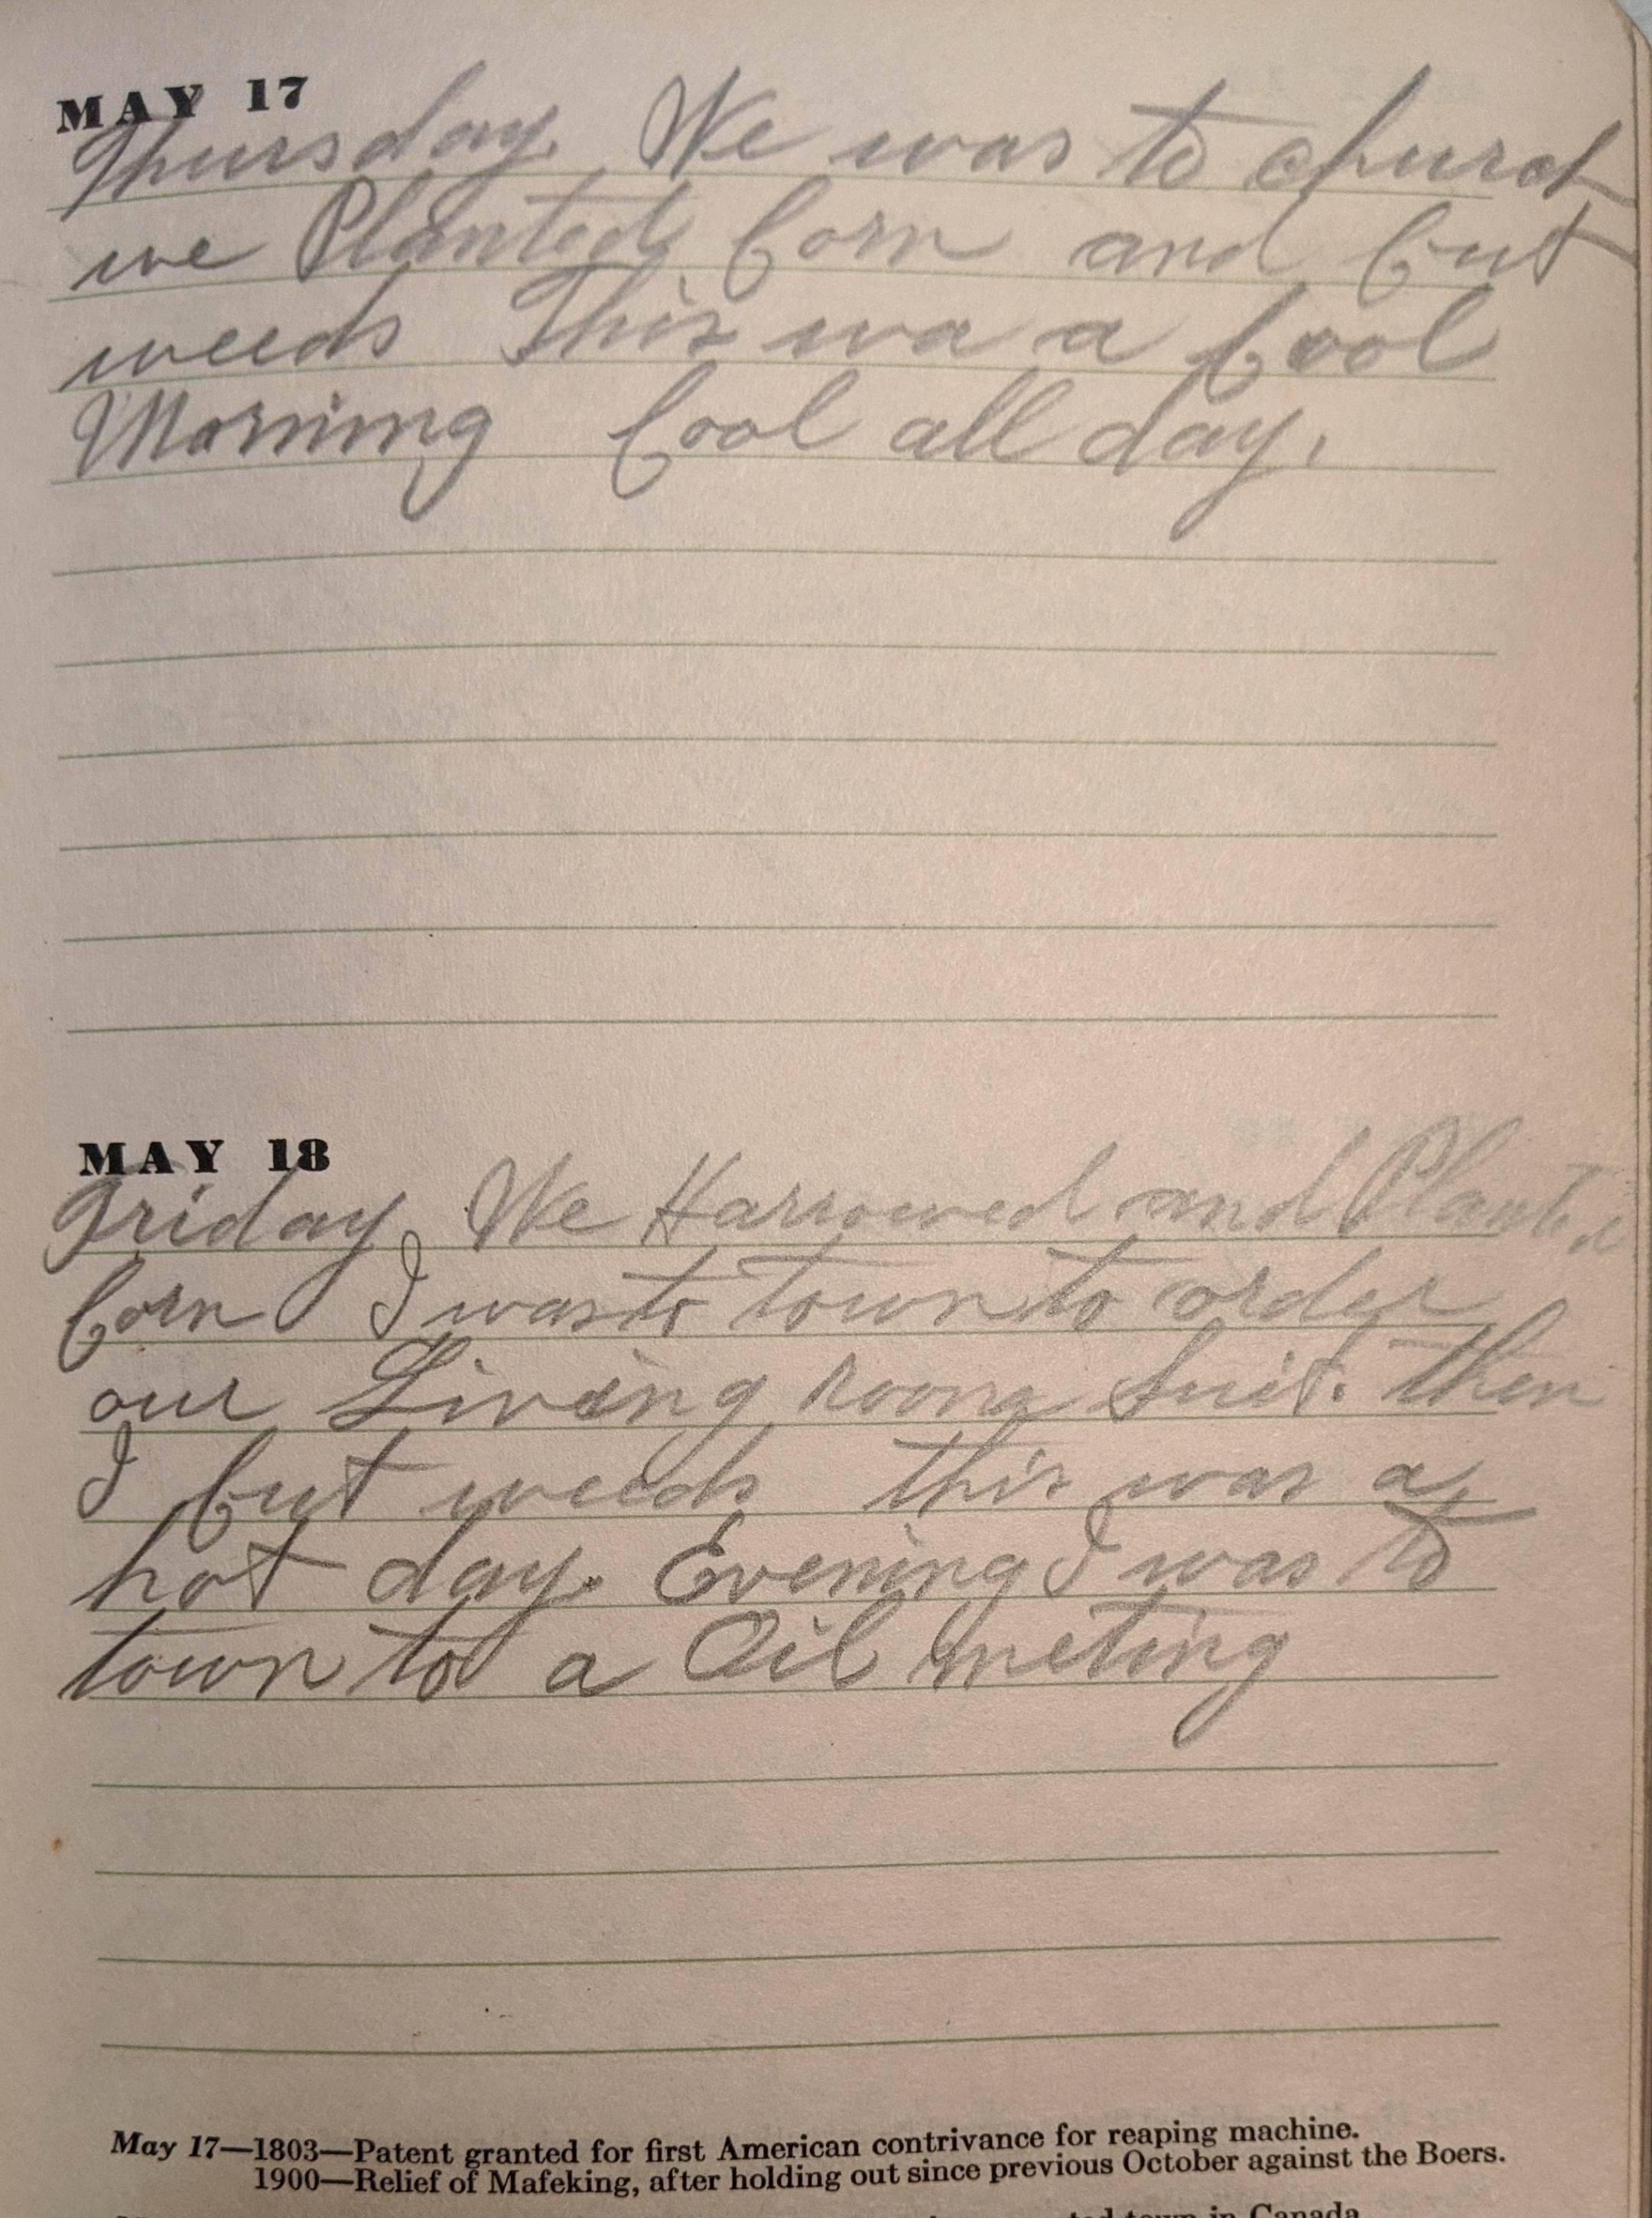 MAY 17
Thursday. We was to church
we Planted Corn and Cut
weeds This wa a Cool
Morning Cool all day.
MAY 18
Friday. We Harrowed and Planted
Corn I was to town to order
our Living room Suit. then
I Cut weeds this was a
hot day. Evening I was to
town to a Oil meting
May 17—1803—Patent granted for first American contrivance for reaping machine.
1900—Relief of Mafeking, after holding out since previous October against the Boers.
town in Canada